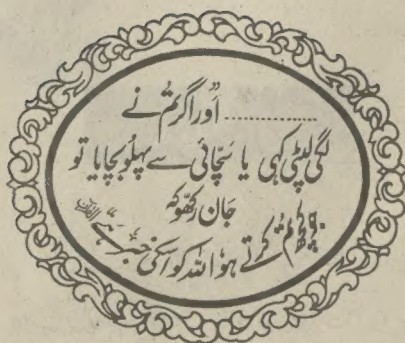 ................ "اور اگر تم نے
لگی لپٹی کہی یا سچائی سے پہلو بچایا تو
جان رکھو کہ
جو کچھ تم کرتے ہو اللہ کو اسکی خبر ہے"